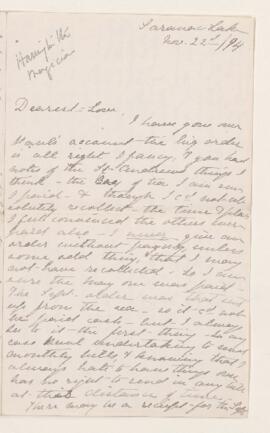 Saranac Lake
Nov. 22nd/94
Harry Kellar
magician
Dearest Love,
I have gone over
account the big order
is all right I fancy, if you had
notes of the St. Andrews things I
think - the Bag of tea I am sure
I paid - & though I cd not ab-
solutely recollect - the time & place
I feel convinced the others were
paid also - I never give an
order without paying unless
some odd thing, that I may
not have recollected - So I am
sure the way one was paid -
The Sept. order was that sent
up from the sea - so it cd not
be paid cash - but I always
see to it the first thing - In any
case undertaking to send
monthly bills, & knowing that I
always hate to have things over
has no right to send in any bill
at that distance of time.
There may be a receipt for the